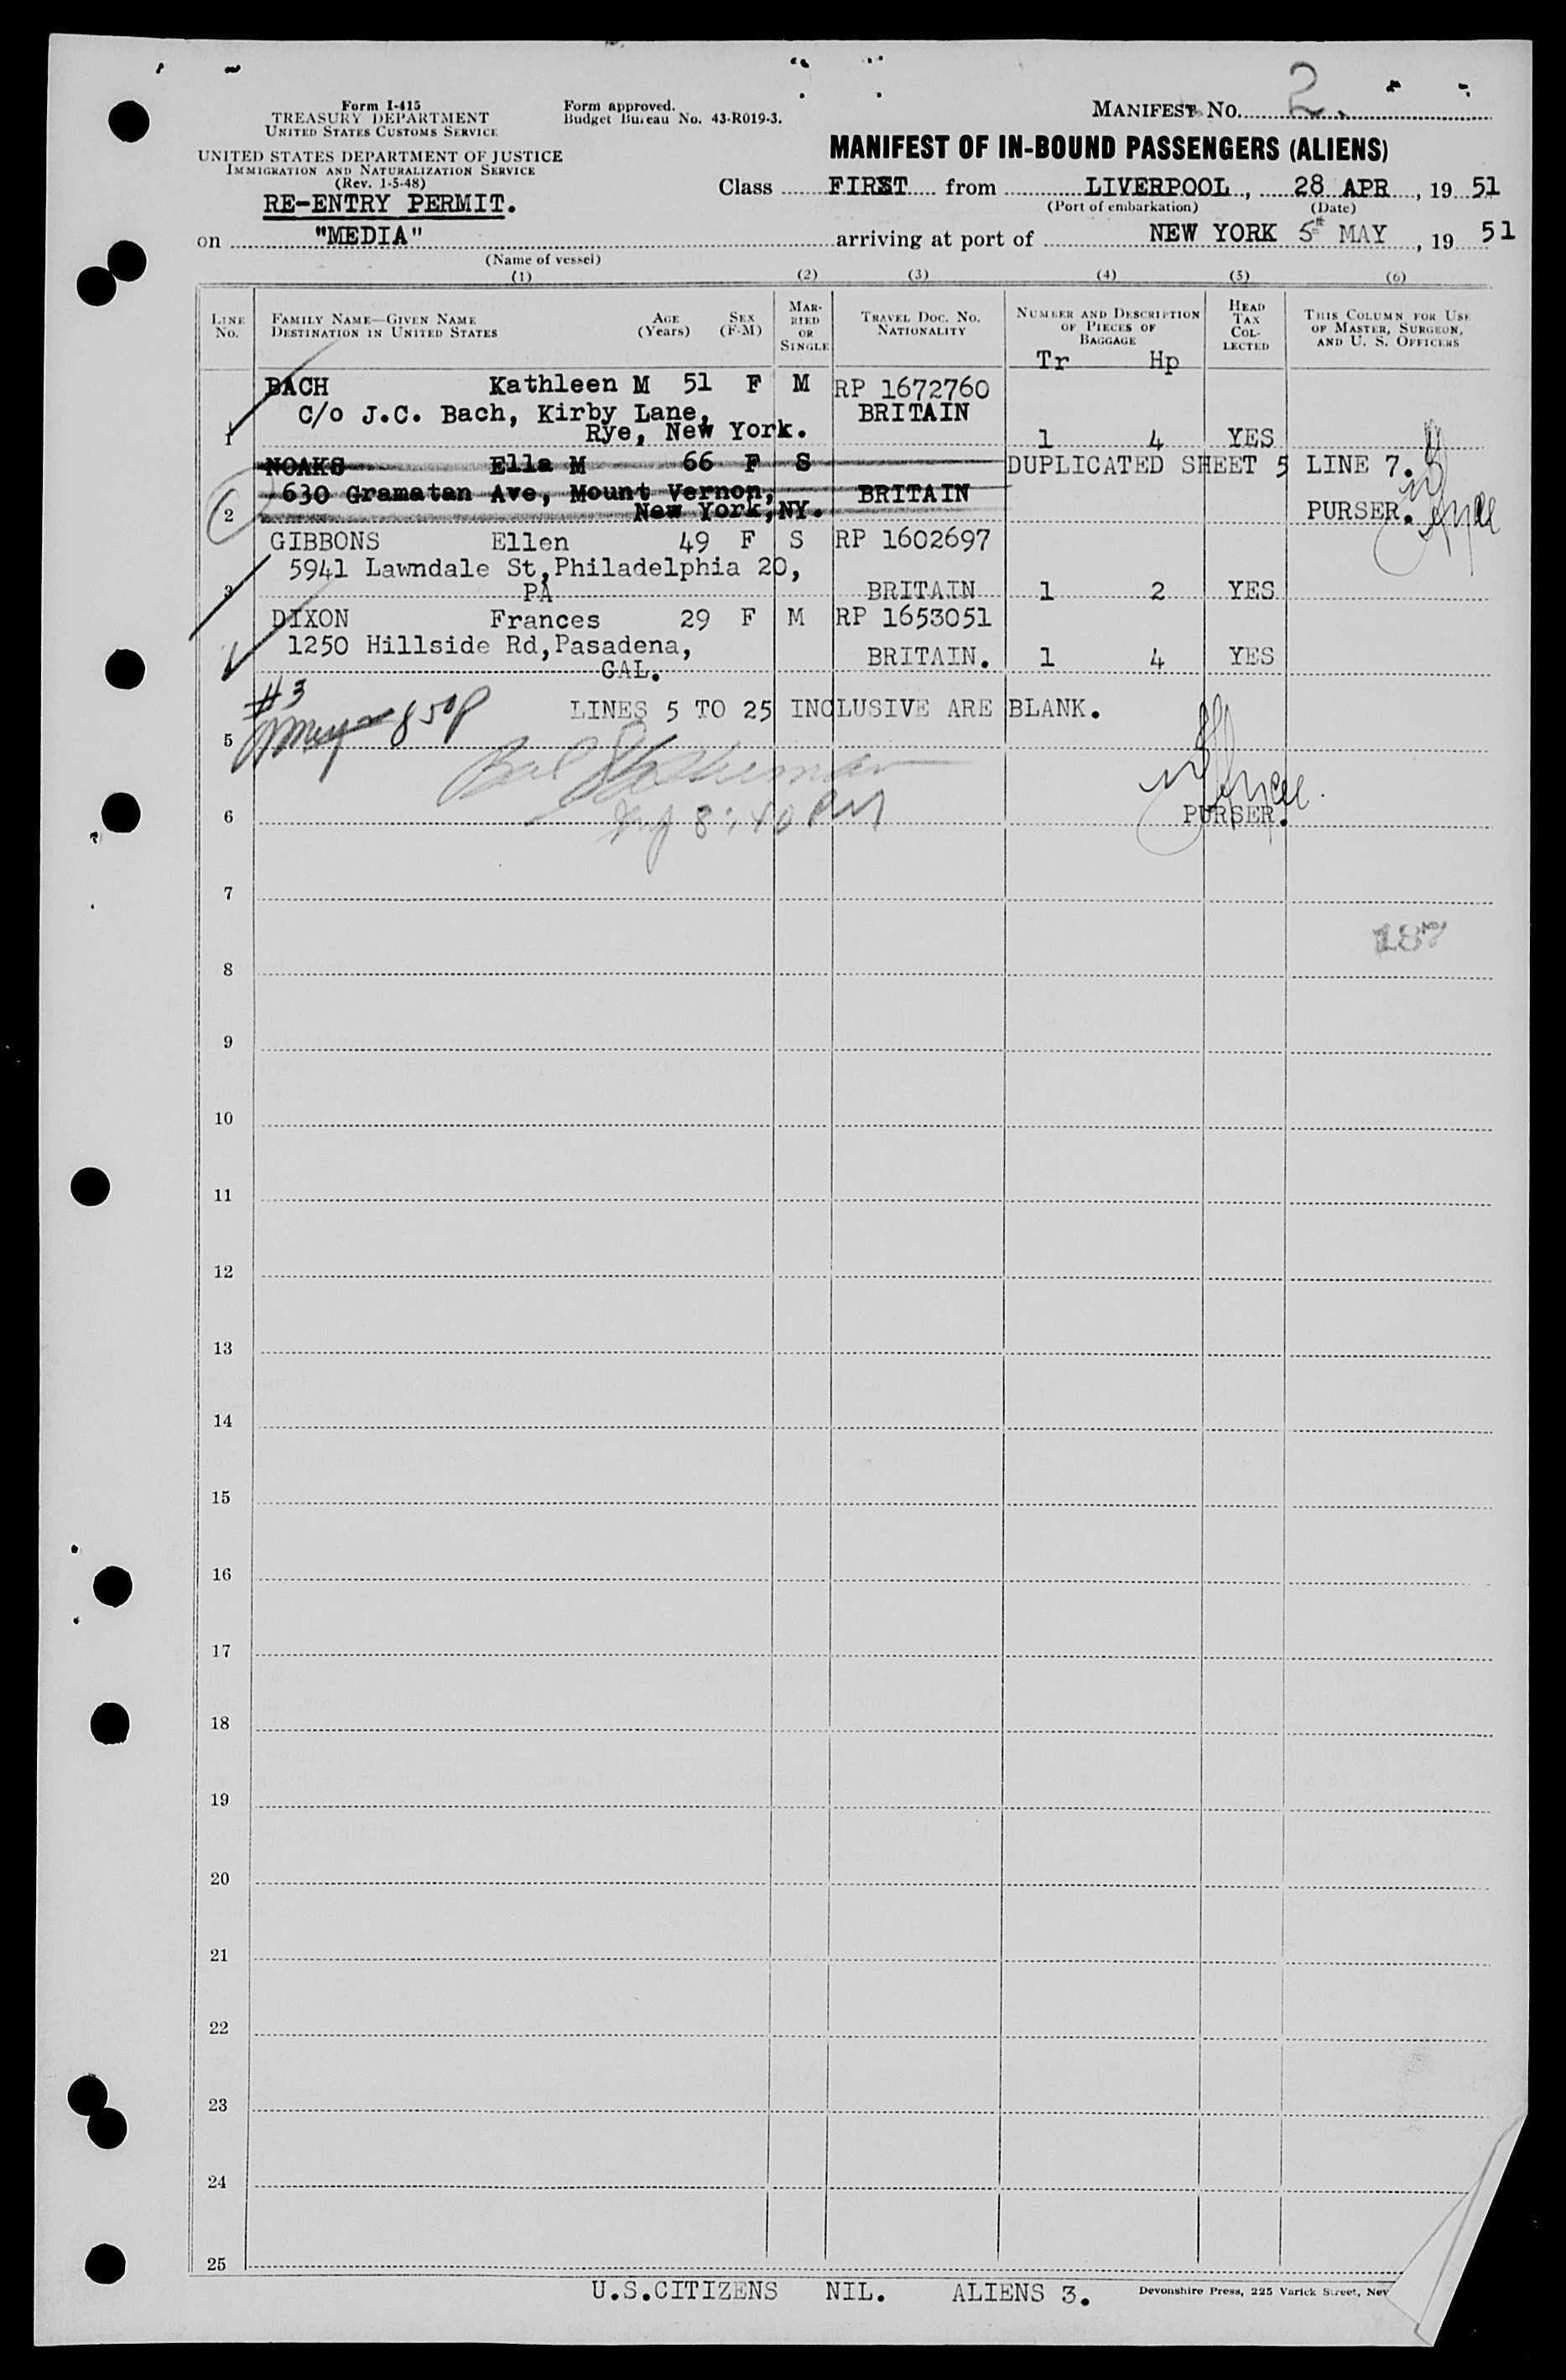 Form I-415
TREASURY DEPARTMENT
UNITED STATES CUSTOMS SERVICE
UNITED STATES DEPARTMENT OF JUSTICE
IMMIGRATION AND NATURALIZATION SERVICE
(Rev. 1-5-48)
RE-ENTRY PERMIT.
Form approved.
Budget Bureau No. 43-R019-3.
MANIFEST No. 2
MANIFEST OF IN-BOUND PASSENGERS (ALIENS)
Class FIRST from LIVERPOOL, 28 APR, 19 51
(Port of embarkation) (Date)
on "MEDIA" arriving at port of NEW YORK 5th MAY, 19 51
(Name of vessel)
(1) (2) (3) (4) (5) (6)
LINE No. FAMILY NAME—GIVEN NAME DESTINATION IN UNITED STATES AGE (Years) SEX (F-M) MARRIED OR SINGLE TRAVEL DOC. NO. NATIONALITY NUMBER AND DESCRIPTION OF PIECES OF BAGGAGE HEAD TAX COLLECTED THIS COLUMN FOR USE OF MASTER, SURGEON, AND U. S. OFFICERS
Tr Hp
BACH Kathleen M 51 F M RP 1672760
C/o J.C. Bach, Kirby Lane, BRITAIN
1 Rye, New York. 1 4 YES
NOAKS Ella M 66 F S DUPLICATED SHEET 5 LINE 7.
630 Gramatan Ave, Mount Vernon, BRITAIN
2 New York, NY. PURSER.
GIBBONS Ellen 49 F S RP 1602697
5941 Lawndale St, Philadelphia 20,
3 PA BRITAIN 1 2 YES
DIXON Frances 29 F M RP 1653051
1250 Hillside Rd, Pasadena, BRITAIN. 1 4 YES
CAL.
#3
850P LINES 5 TO 25 INCLUSIVE ARE BLANK.
5
8:40 PM
6 PURSER.
7
187
8
9
10
11
12
13
14
15
16
17
18
19
20
21
22
23
24
25
U.S.CITIZENS NIL. ALIENS 3. Devonshire Press, 225 Varick Street, New